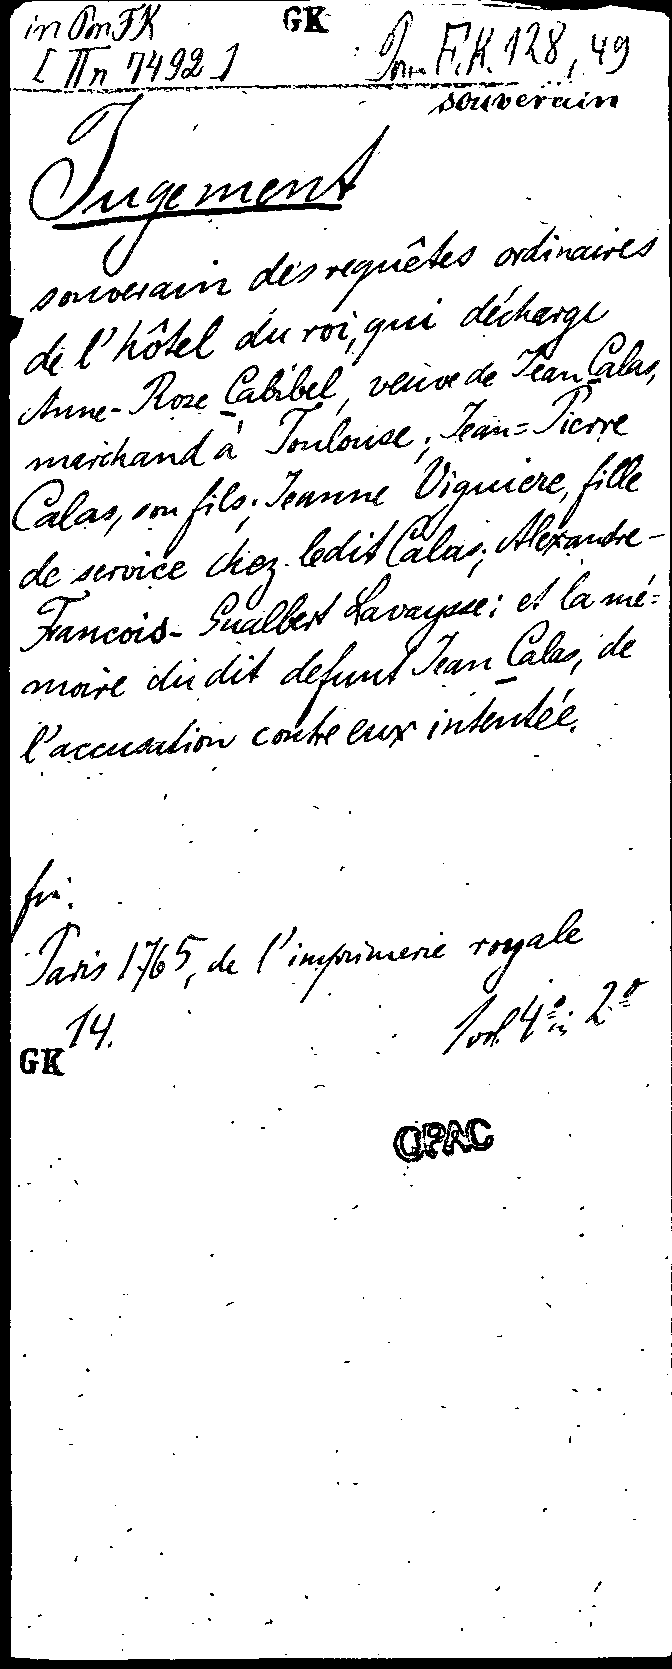 in Pon FK
GK
[ IIn 7492 ]
Pon. F.K. 128, 49
souverain
Jugement
souverain des requêtes ordinaires
de l'hôtel du roi, qui décharge
Anne-Rose Cabibel, veuve de Jean Calas,
marchand à Toulouse; Jean=Pierre
Calas, son fils; Jeanne Viguiere, fille
de service chez ledit Calas; Alexandre-
Francois-Gualbert Lavaysse: et la mé=
moire du dit defunt Jean Calas, de
l'accusation contre eux intentée.
fü.
Paris 1765, de l'imprimerie royale
14.
1 vol. 4° in 2°
GK
OPAC